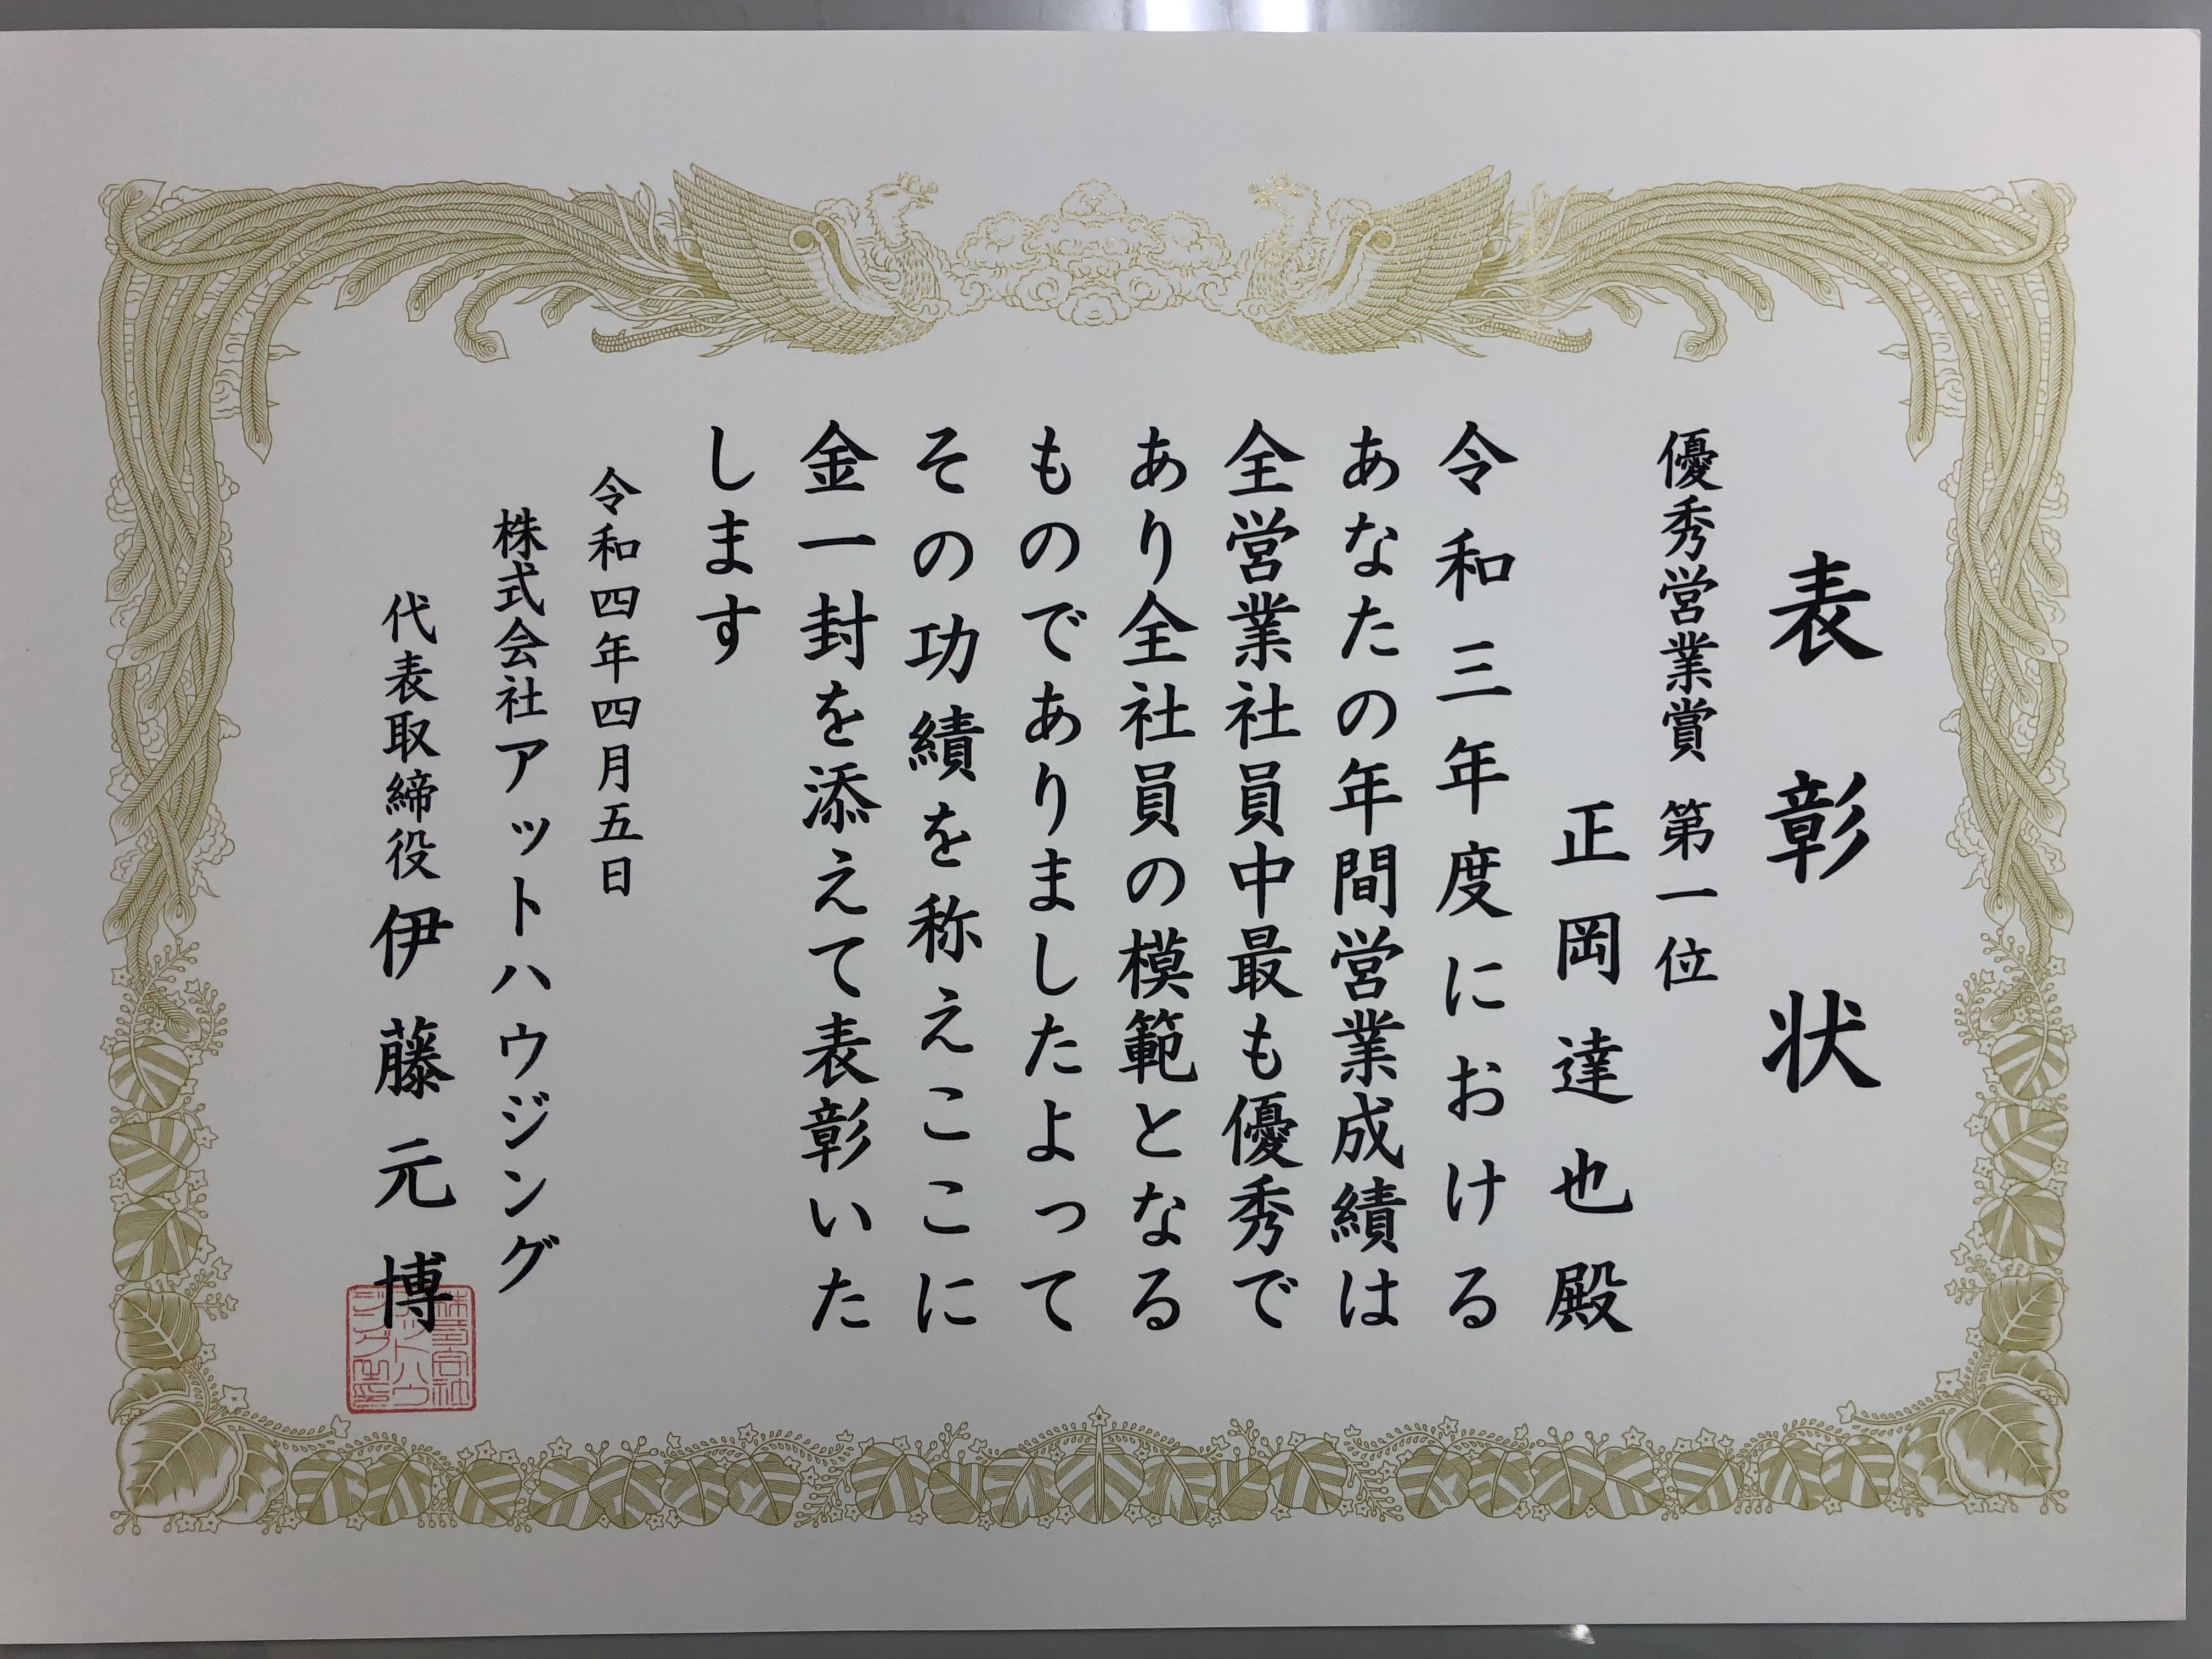 表彰状
優秀営業賞 第一位
正岡達也殿
令和三年度における
あなたの年間営業成績は
全営業社員中最も優秀で
あり全社員の模範となる
ものでありましたよって
その功績を称えここに
金一封を添えて表彰いた
します
令和四年四月五日
株式会社アットハウジング
代表取締役 伊藤元博